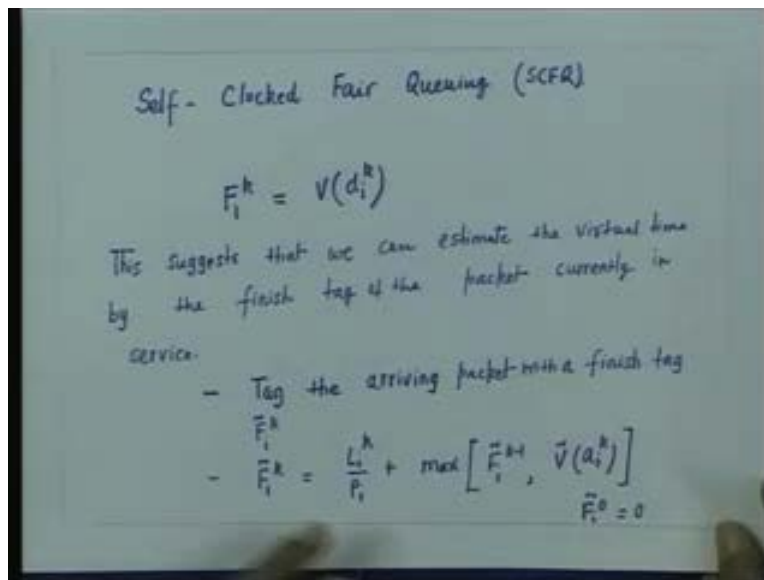 Self - Clocked Fair Queuing (SCFQ)
F_i^k = V(d_i^k)
This suggests that we can estimate the virtual time
by the finish tag of the packet currently in
service.
- Tag the arriving packet with a finish tag
F̃_i^k
- F̃_i^k = L_i^k / P_i + max [ F̃_i^{k-1}, Ṽ(a_i^k) ]
F̃_i^0 = 0